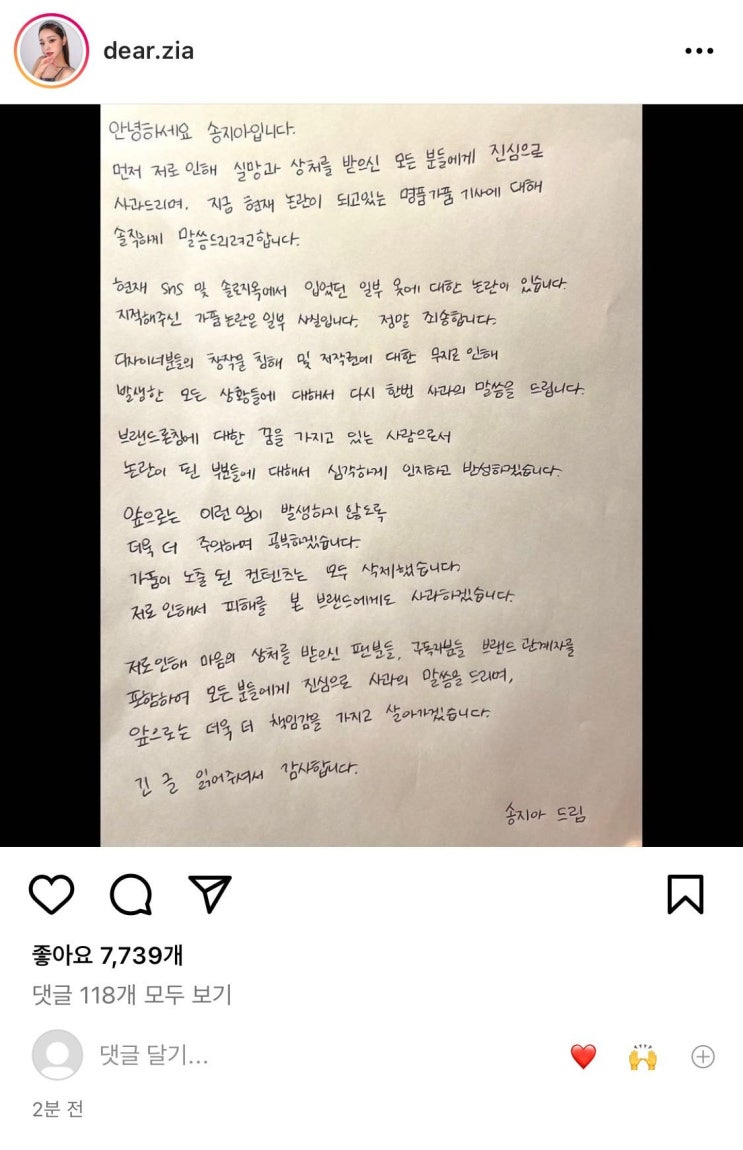 dear.zia
안녕하세요 송지아입니다.
먼저 저로 인해 실망과 상처를 받으신 모든 분들에게 진심으로
사과드리며, 지금 현재 논란이 되고있는 명품가품 기사에 대해
솔직하게 말씀드리려고합니다.
현재 sns 및 솔로지옥에서 입었던 일부 옷에 대한 논란이 있습니다.
지적해주신 가품논란은 일부 사실입니다. 정말 죄송합니다.
디자이너분들의 창작물 침해 및 저작권에 대한 무지로 인해
발생한 모든 상황들에 대해서 다시 한번 사과의 말씀을 드립니다.
브랜드론칭에 대한 꿈을 가지고 있는 사람으로서
논란이 된 부분들에 대해서 심각하게 인지하고 반성하겠습니다.
앞으로는 이런 일이 발생하지 않도록
더욱 더 주의하며 공부하겠습니다.
가품이 노출 된 컨텐츠는 모두 삭제했습니다.
저로 인해서 피해를 본 브랜드에게도 사과하겠습니다.
저로인해 마음의 상처를 받으신 팬분들, 구독자분들 브랜드 관계자를
포함하여 모든 분들에게 진심으로 사과의 말씀을 드리며,
앞으로는 더욱 더 책임감을 가지고 살아가겠습니다.
긴 글 읽어주셔서 감사합니다.
송지아 드림
좋아요 7,739개
댓글 118개 모두 보기
댓글 달기...
2분 전